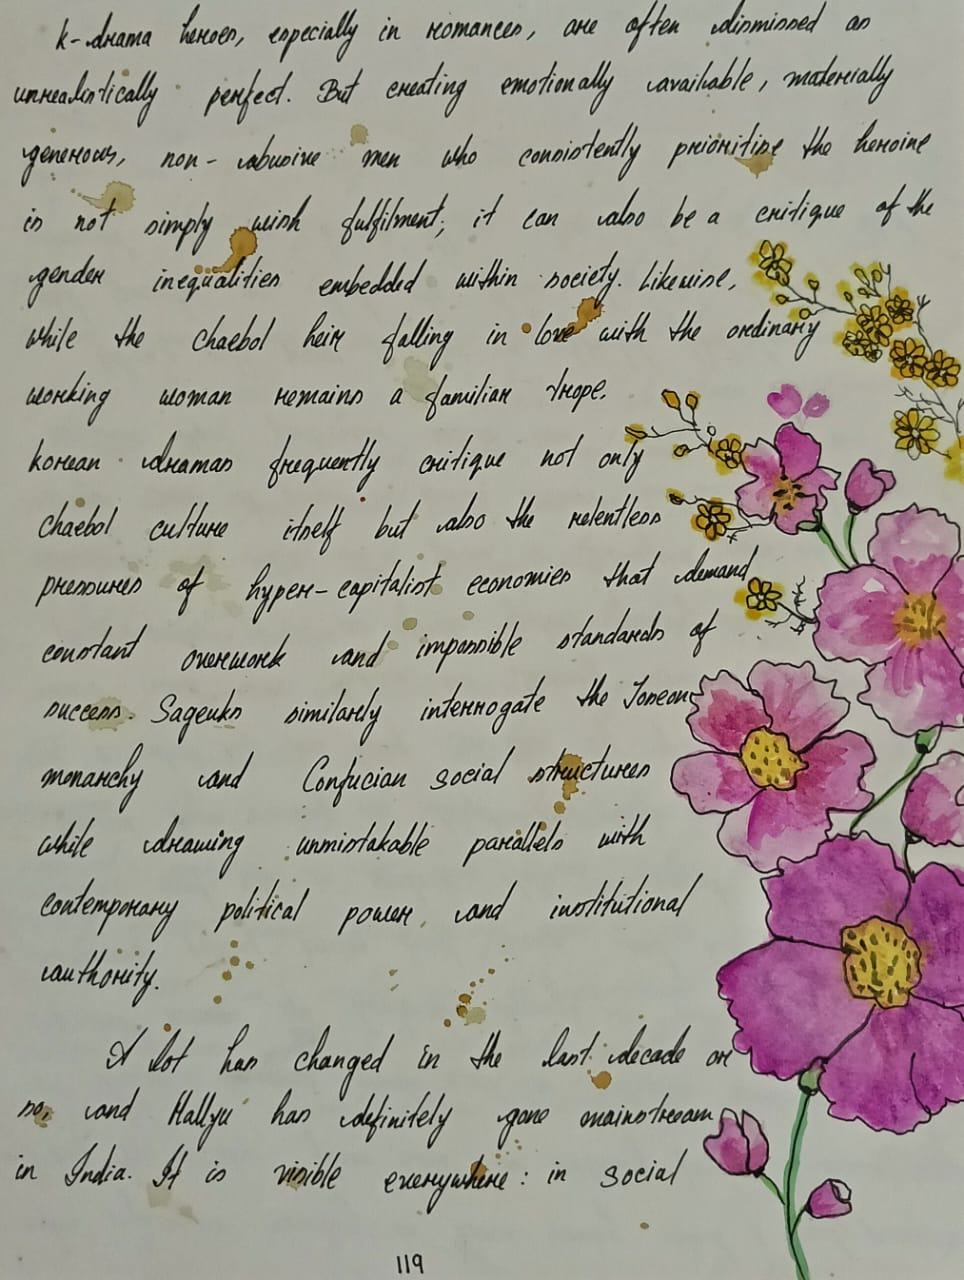 k-drama heroes, especially in romances, are often dismissed as
unrealistically perfect. But creating emotionally available, materially
generous, non-abusive men who consistently prioritise the heroine
is not simply wish fulfilment; it can also be a critique of the
gender inequalities embedded within society. Likewise,
while the chaebol heir falling in love with the ordinary
working woman remains a familiar trope.
korean dramas frequently critique not only
chaebol culture itself but also the relentless
pressures of hyper-capitalist economies that demand
constant overwork and impossible standards of
success. Sageuks similarly interrogate the Joseon
monarchy and Confucian social structures
while drawing unmistakable parallels with
contemporary political power, and institutional
authority.
A lot has changed in the last decade or
so, and Hallyu has definitely gone mainstream
in India. It is visible everywhere: in social
119